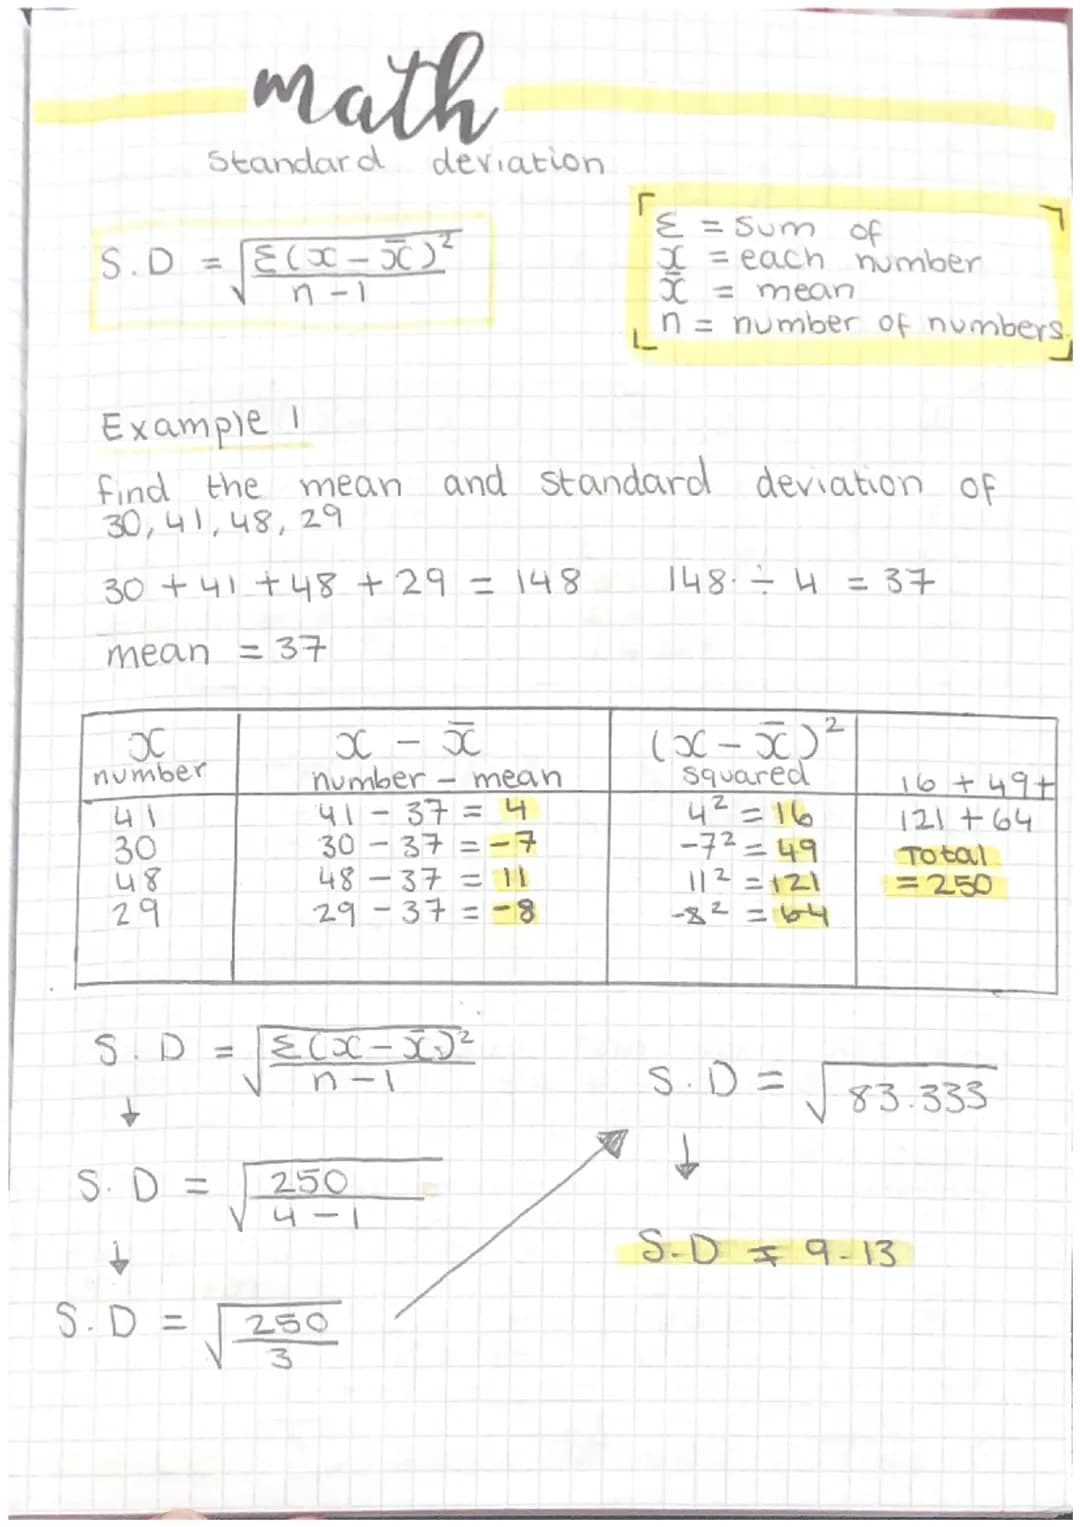 math
standard deviation
S.D = √Σ(x - x̄)² / n - 1
Σ = sum of
x = each number
x̄ = mean
n = number of numbers.
Example 1
find the mean and standard deviation of
30, 41, 48, 29
30 + 41 + 48 + 29 = 148 148 ÷ 4 = 37
mean = 37
x x - x̄ (x - x̄)²
number number - mean squared 16 + 49 +
41 41 - 37 = 4 4² = 16 121 + 64
30 30 - 37 = -7 -7² = 49 Total
48 48 - 37 = 11 11² = 121 = 250
29 29 - 37 = -8 -8² = 64
S.D = √Σ(x - x̄)² / n - 1
↓
S.D = √250 / 4 - 1
↓
S.D = √250 / 3
S.D = √83.333
↓
S.D = 9.13